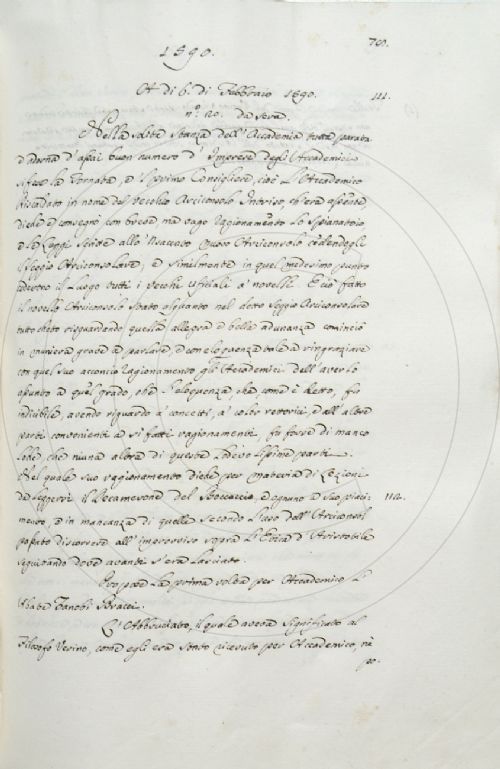 1590.
A di 6. di Febbraio 1590. 111.
n.º 20. da sera.
Nella solita Stanza dell'Accademia tutta parata
d'adorna d'assai buon numero d'Imprese degli Accademici
si fece la Tornata, e 'l primo Consigliere, cioè L'Accademico
Riscaldato in nome del vecchio Arciconsolo Intriso ch'era assente
diede e consegnò con breve ma vago ragionamento Lo Spianatoio
e le Leggi Scritte allo nuovo Arciconsolo cedendogli
il Seggio Arciconsolare, e Similmente in quel medesimo punto
cedettro il Luogo tutti i vecchi Uficiali a' novelli. E ciò fatto
il novello Arciconsolo stato alquanto nel detto Seggio Arciconsolare
tutto cheto risguardando questa allegra e bella adunanza cominciò
in maniera grave a parlare, e con eloquenza tale a ringraziare
con quel suo acconcio ragionamento gli Accademici dell'averlo
assunto a quel grado, che l'eloquenza, che, come è detto, fu
indicibile, avendo riguardo a' concetti, a' color rettorici, e all'altre
parti convenienti a sì fatti ragionamenti, fu forse di manco
lode, che niuna altra di queste Lodevolissime parti.
Nel quale suo ragionamento diede per materia di Lezioni
da Leggersi il Decamerone del Boccaccio, e ognuno a suo piaci- 112.
mento, e in mancanza di quelle Secondo L'uso dell'Arciconsol
passato discorrere all'improvviso sopra L'Etica d'Aristotile
seguitando dove avanti s'era Lasciato.
Propose La prima volta per Accademico L'
Abate Zanobi Bracci.
L'Abburattato, il quale aveva significato al
Filosofo Verino, come egli era stato ricevuto per Accademico, nè
po-